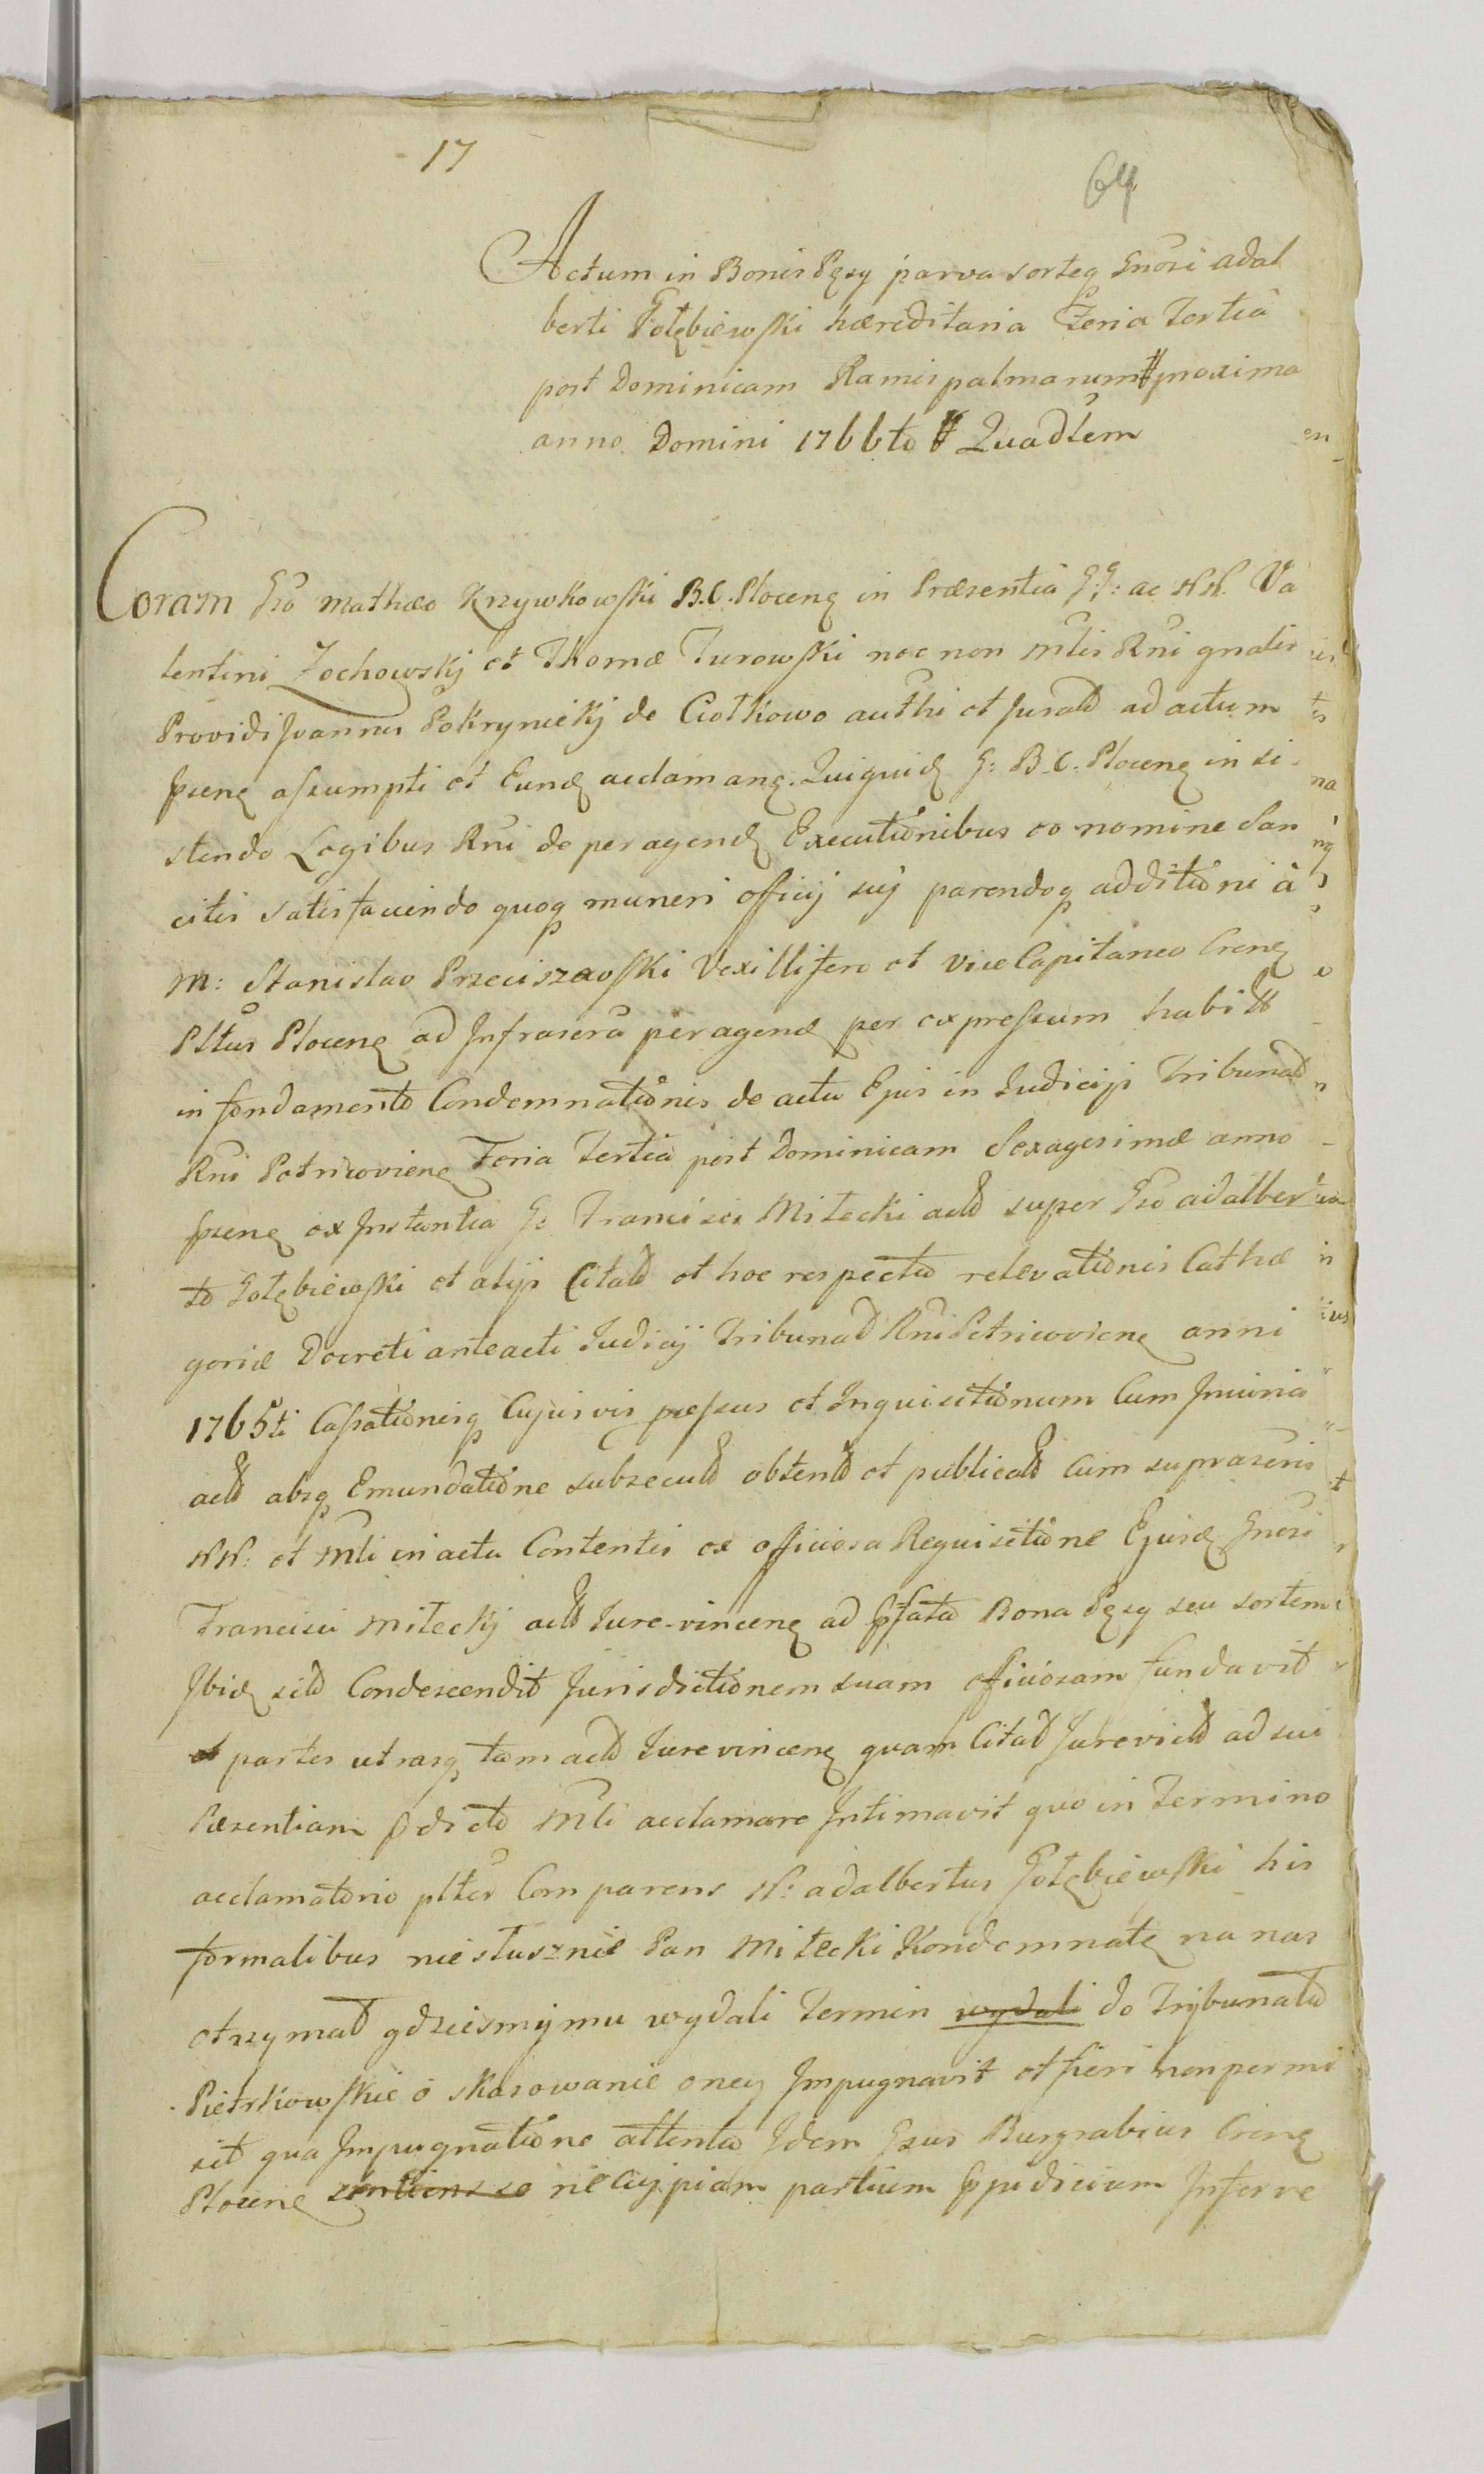 17
64
Actum in Bonis Pęsy parva sorteq Gnosi adal
berti Gołębiewski hæreditaria Feria Tertia
post Dominicam Ramis palmarum proxima
anno Domini 1766to Quadtem
Coram Gso Mathæo Krzywkowski B.C. Plocenq in Præsentia GG: ac NN. Va
lentini Zochowskj et Thomæ Turowski nec non Mlis Rni gnalis
Providi Joannis Pokrynickj de Ciołkowo authi et Jurad ad actum
psenq assumpti et Eund acclamanq. Quiquid G: B.C. Plocenq in si-
stendo Legibus Rni de peragend Executionibus eo nomine San
citis satisfaciendo quoq muneri officij suj parendoq additioni à
M: Stanislao Przeciszewski Vexillifero et ViceCapitaneo Crenq
Pltus Plocenq ad Infrascra peragend per expressum habitt
in fundamento Condemnationis de actu Ejus in Judicijs Tribunad
Rni Petricovienq Feria Tertia post Dominicam Sexagesimæ anno
psenq ex Instantia G: Francisci Miłecki actd super Gso adalber
to Gołębiewski et alijs Citatd et hoc respectu relevationis Cathe
goriæ Decreti anteacti Judicij Tribunad Rni Petricovienq anni
1765ti Cassationisq Cujusvis pcessus et Inquisitionum Cum Injuria
actd absq Emundatione subsecutd obtentd et publicatd cum suprascris
NN: et Mli in actu Contentis ex officiosa Requisitione Ejusd Gnosi
Francisci Miłeckj actd Jure-vincenq ad pfata Bona Pęsy seu sortem
Ibid sitd Condescendit Jurisdictionem suam officiosam fundavit
et partes utrasq tam actd Jurevincenq quam Citad Jurevictd ad sui
Pæsentiam pdicto Mli acclamare Intimavit quo in Termino
acclamatorio plter Comparens N: adalbertus Gołębiewski his
formalibus niesłusznie Pan Miłecki Kondemnatę na nas
otrzymał gdziesmy mu wydali Termin wydali do Trybunału
Pietrkowskie o skasowanie oney Impugnavit et fieri non permi
sit qua Impugnatione attenta Idem Gsus Burgrabius Crenq
Plocenq sentiens se nécujpiam partium ppjudicium Inferre